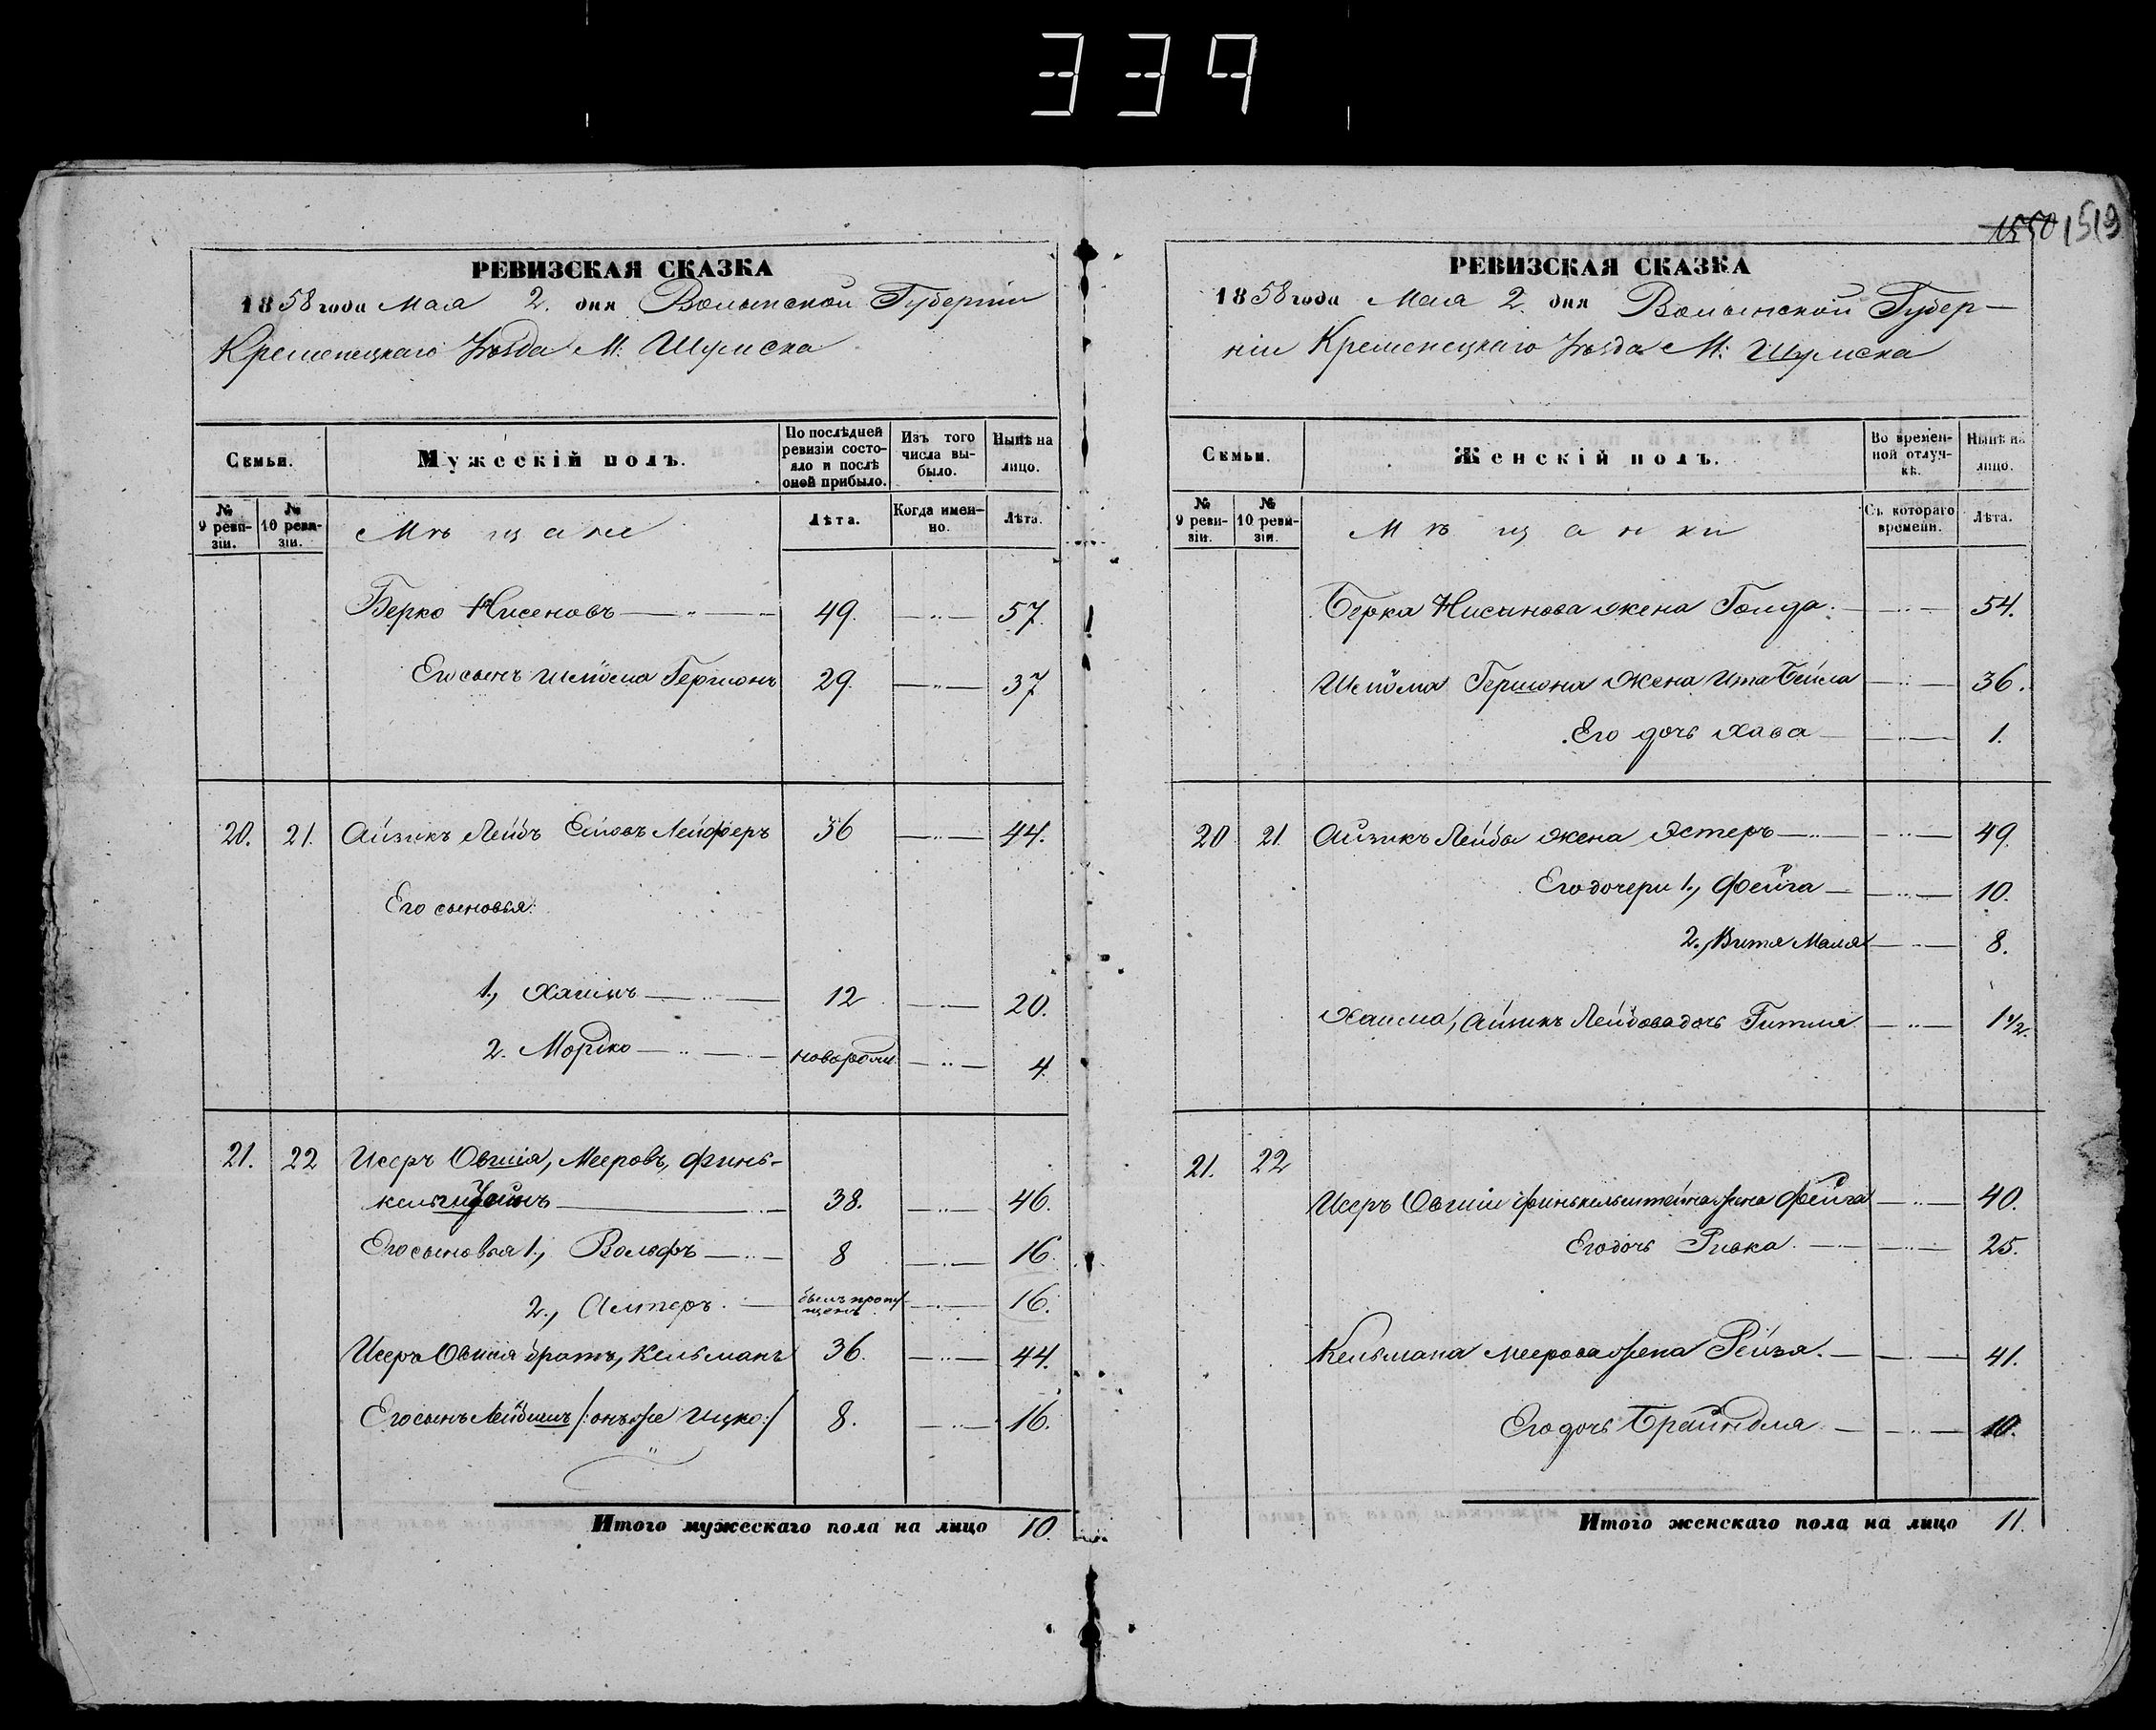 339
1550 1519
РЕВИЗСКАЯ СКАЗКА
1858 года Мая 2. дня Волынской Губерніи
Кременецкаго Уѣзда М: Шумска
Семьи.
Мужескій полъ.
По послѣдней ревизіи состояло и послѣ оной прибыло.
Изъ того числа выбыло.
Нынѣ на лицо.
№ 9 ревизіи.
№ 10 ревизіи.
Мѣщане
Лѣта.
Когда именно.
Лѣта.
Берко Нисеновъ — " — 49. — " — 57.
Его сынъ Шлiома Гершонъ 29. — " — 37
20. 21. Айзикъ Лейбъ Лейферъ 36 — " — 44.
Его сыновья:
1., Хаимъ — " — 12 — " — 20.
2. Мортко — " — новорожд. — " — 4
21. 22 Исеръ Овшія, Мееровъ, Финь-
кельштейнъ — " — 38. — " — 46.
Его сыновья 1., Вольфъ — " — 8 — " — 16.
2., Алтеръ. — былъ пропущенъ — " — 16.
Исеръ Овшія братъ, Кельманъ 36. — " — 44.
Его сынъ Лейбишъ /: онъ же Ицко :/ 8. — " — 16.
Итого мужескаго пола на лицо 10.
РЕВИЗСКАЯ СКАЗКА
1858 года Мая 2. дня Волынской Губер-
ніи Кременецкаго Уѣзда М: Шумска
Семьи.
Женскій полъ.
Во временной отлучкѣ.
Нынѣ на лицо.
№ 9 ревизіи.
№ 10 ревизіи.
Мѣщанки
Съ котораго времени.
Лѣта.
Берка Нисинова жена Голда. — " — 54.
Шлiома Гершона жена Ита Бейла — " — 36.
Его дочь Хава — " — 1.
20 21 Айзикъ Лейбы жена Эстеръ — " — 49.
Его дочери 1., Фейга — " — 10.
2., Витя Маля — " — 8.
Хаима, Айзикъ Лейбова дочь Гитля — " — 1 1/2.
21. 22
Исеръ Овшіи Финькельштейна жена Фейга — " — 40.
Его дочь Ривка. — " — 25.
Кельмана Меерова жена Рейзя. — " — 41.
Его дочь Брайндля — " — 10.
Итого женскаго пола на лицо 11.